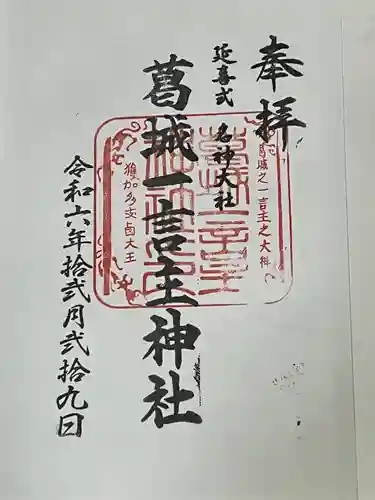 奉拝
延喜式
名神大社
葛城一言主神社
令和六年拾弐月弐拾九日
葛城之一言主之大神
獲加多支鹵大王